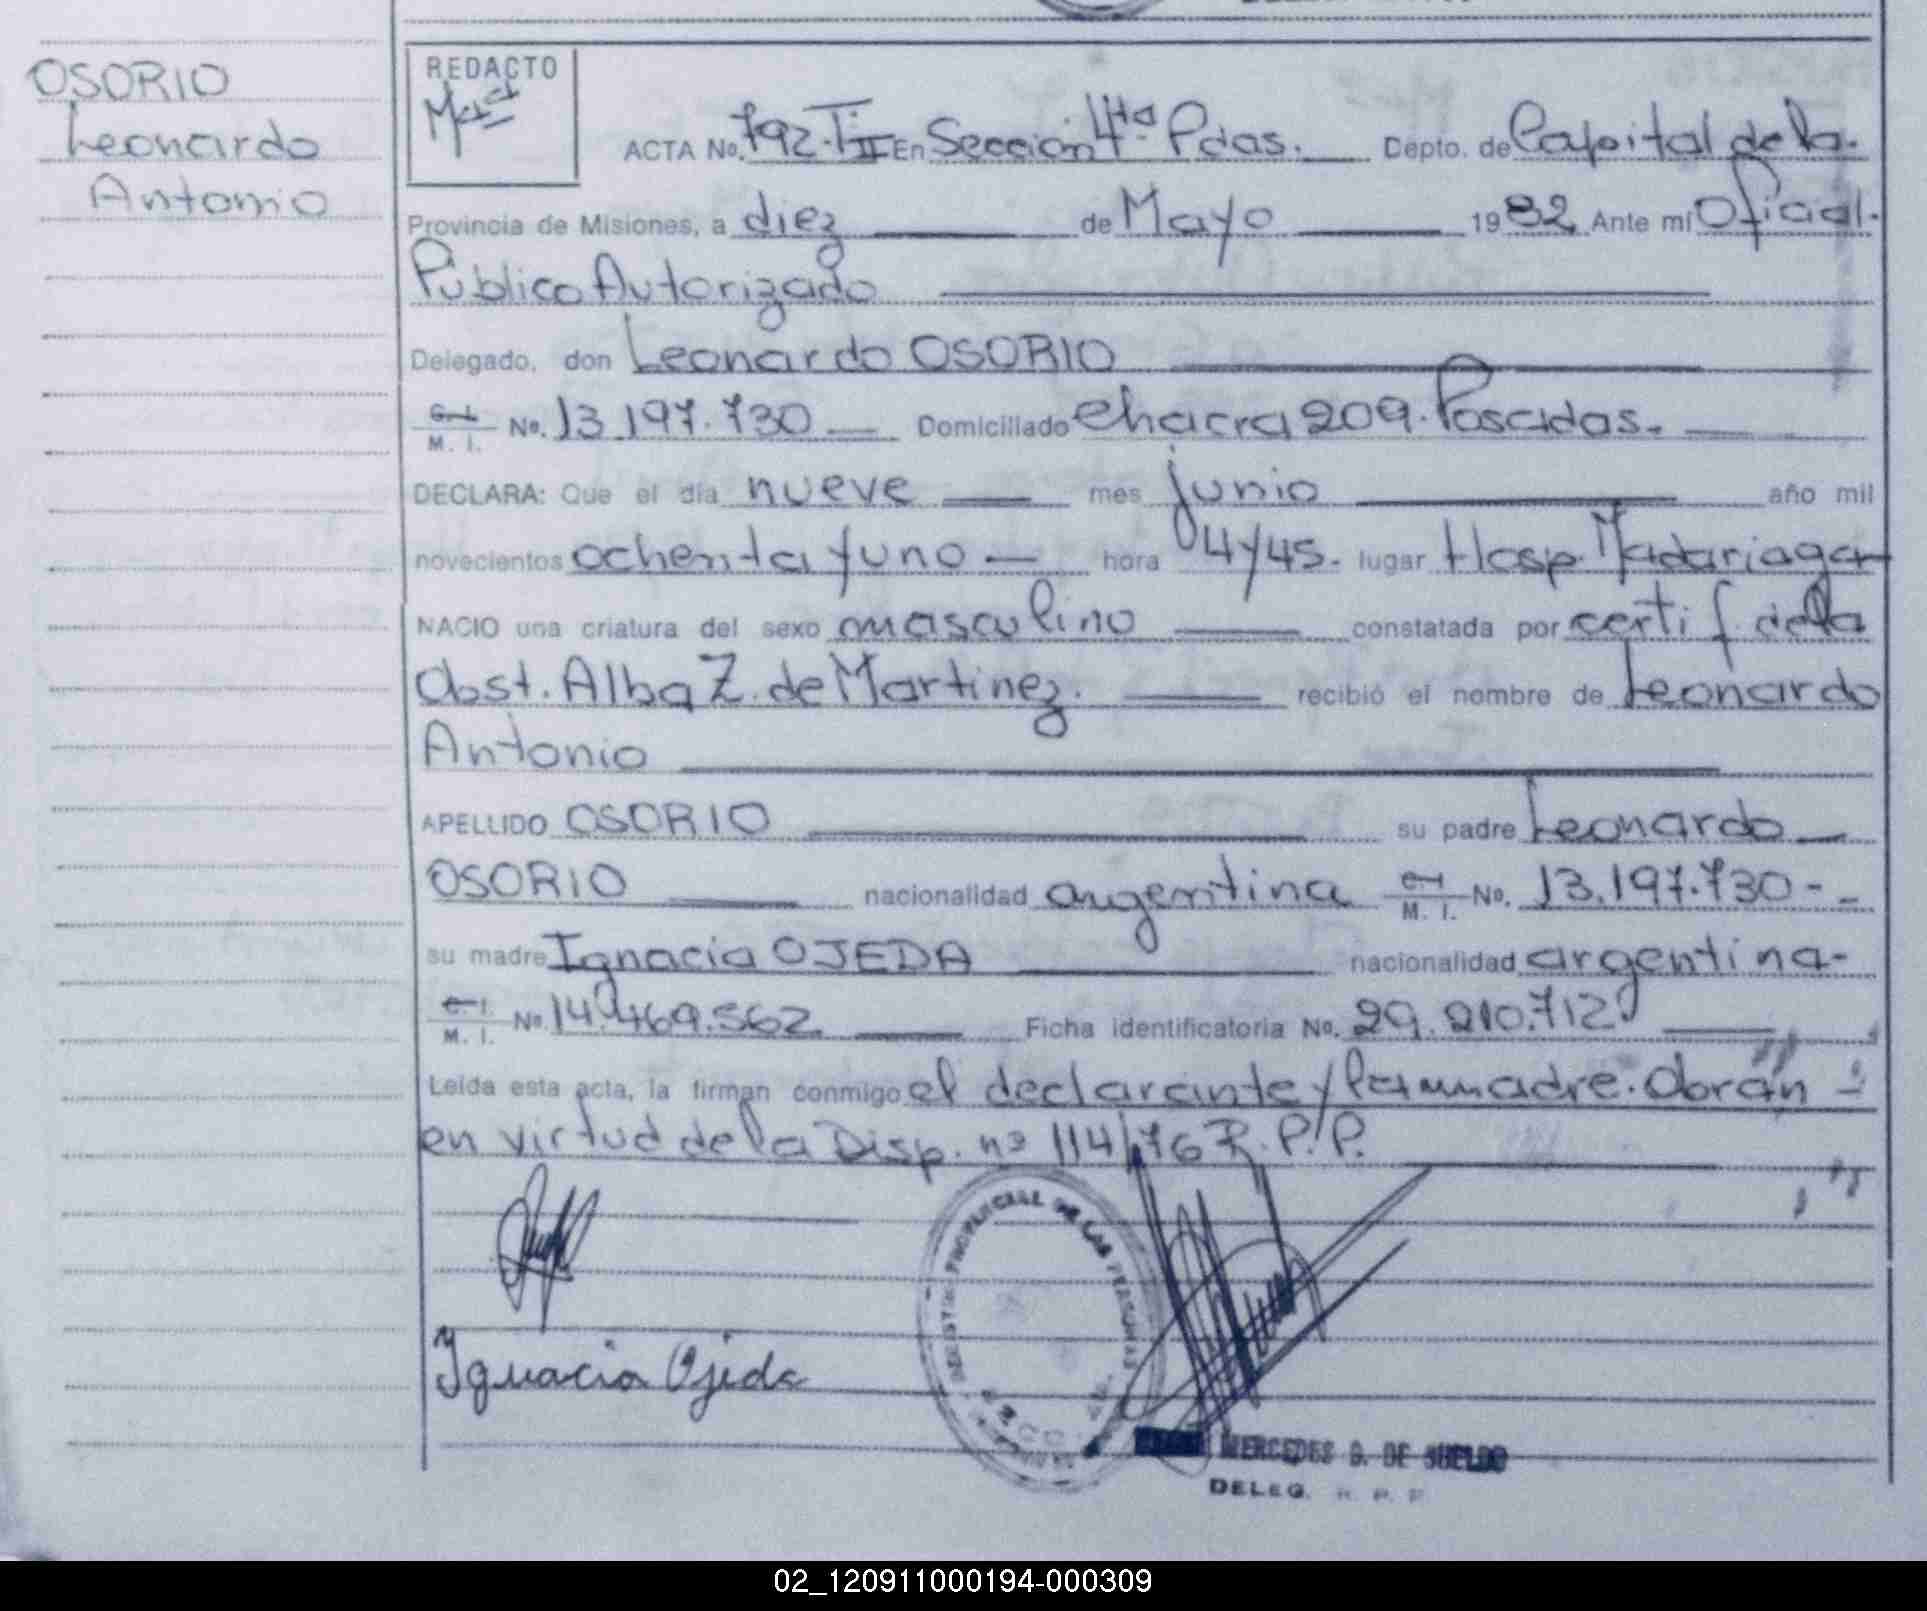 OSORIO
Leonardo
Antonio
REDACTO
ACTA No. 792. T II En Sección 4ta Pdas. Depto. de Capital de la.
Provincia de Misiones, a diez de Mayo 1982 Ante mí Oficial.
Público Autorizado
Delegado, don Leonardo OSORIO
C. I. M. I. No. 13.197.730 Domiciliado Chacra 209. Posadas.
DECLARA: Que el día nueve mes junio año mil
novecientos ochenta y uno hora 04 y 45. lugar Hosp. Madariaga
NACIO una criatura del sexo masculino constatada por certif. de la
Obst. Alba Z. de Martinez. recibió el nombre de Leonardo
Antonio
APELLIDO OSORIO su padre Leonardo
OSORIO nacionalidad argentina C. I. M. I. No. 13.197.730
su madre Ignacia OJEDA nacionalidad argentina
C. I. M. I. No. 14.469.562 Ficha identificatoria No. 29.210.712
Leída esta acta, la firman conmigo el declarante y la madre. Obran
en virtud de la Disp. nº 114/76 R.P.P.
REGISTRO PROVINCIAL DE LAS PERSONAS
Ignacia Ojeda
MERCEDES D. DE SUELDO
DELEG. R. P. P.
02_120911000194-000309